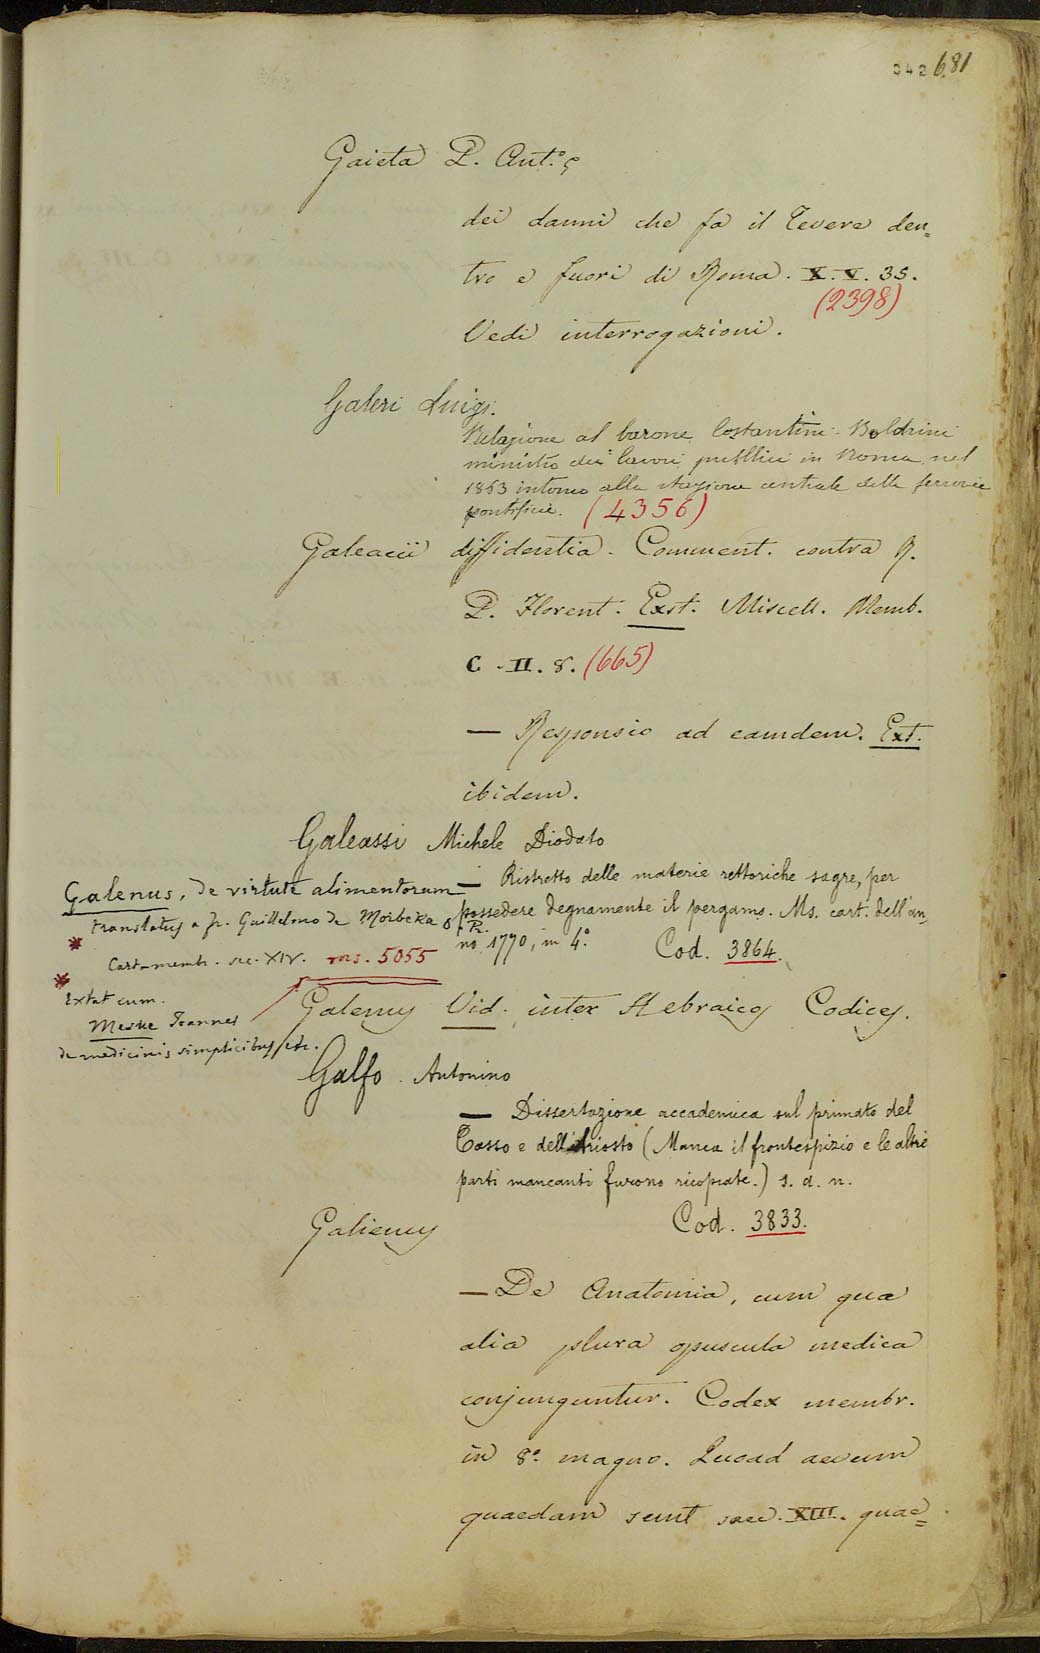 342 681
Gaieta P. Ant.º
dei danni che fa il Tevere den=
tro e fuori di Roma. X. V. 35.
(2398)
Vedi interrogazioni.
Galeri Luigi.
Relazione al barone Costantini-Baldini
ministro dei lavori pubblici in Roma nel
1863 intorno alla stazione centrale delle ferrovie
pontificie. (4356)
Galeacii diffidentia. Comment. contra R.
P. Florent. Ext. Miscell. Memb.
C. II. 8. (665)
— Responsio ad eamdem. Ext.
ibidem.
Galeassi Michele Diodato
— Ristretto delle materie rettoriche sagre, per
possedere degnamente il pergamo. Ms. cart. dell'an,
no 1770, in 4.º Cod. 3864.
Galenus, de virtute alimentorum
translatus a fr. Guillelmo de Morbeka O. P.
* Cart-membr. sec. XIV. ms. 5055
* Extat cum.
Mesue Joannes
de medicinis simplicibus etc.
Galenus Vid. inter Hebraicos Codices.
Galfo. Antonino
— Dissertazione accademica sul primato del
Tasso e dell'Ariosto (Manca il frontespizio e le altre
parti mancanti furono ricopiate.) s. d. n.
Cod. 3833.
Galienus
— De Anatomia, cum qua
alia plura opuscula medica
conjunguntur. Codex membr.
in 8.º magno. Quoad aevum
quaedam sunt saec. XIII. quae=